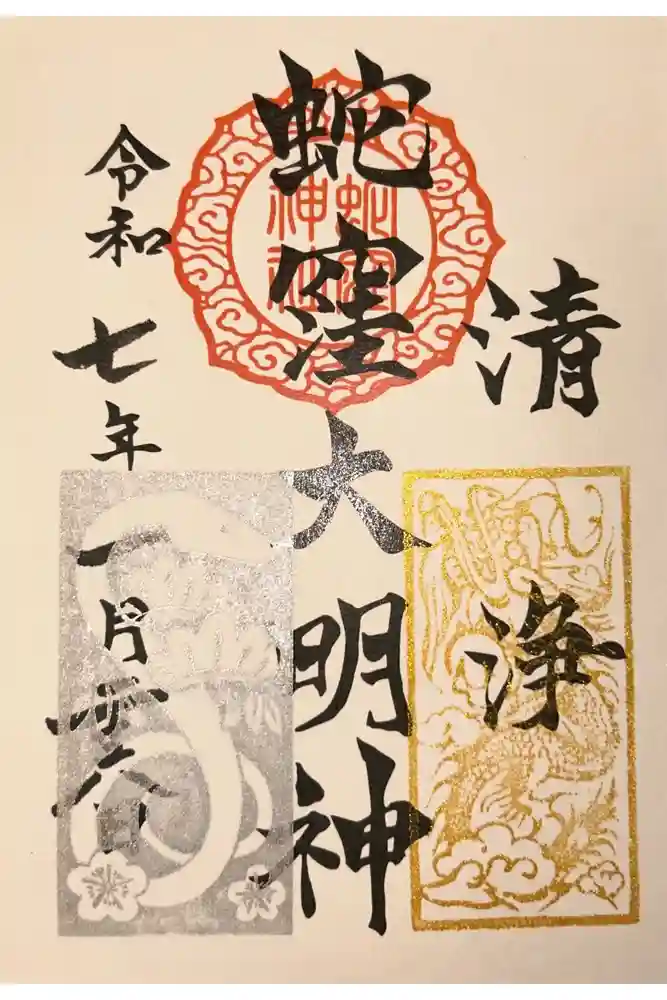 清浄
蛇窪大明神
蛇窪
神社
令和七年一月廿 日